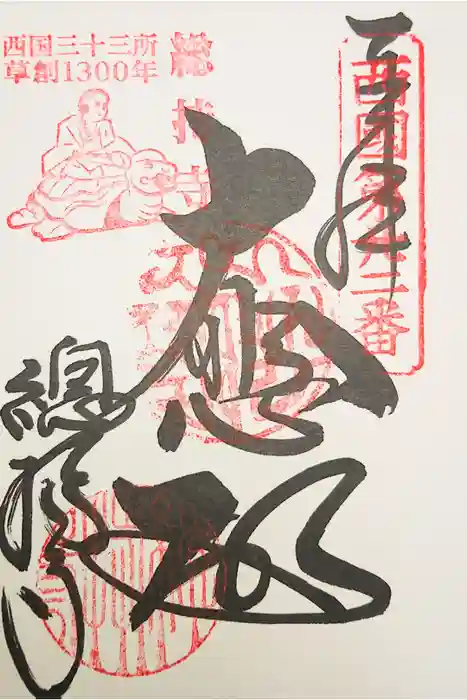 奉拝
西国第廿二番
大悲殿
西国三十三所
草創1300年
総持寺
總持寺